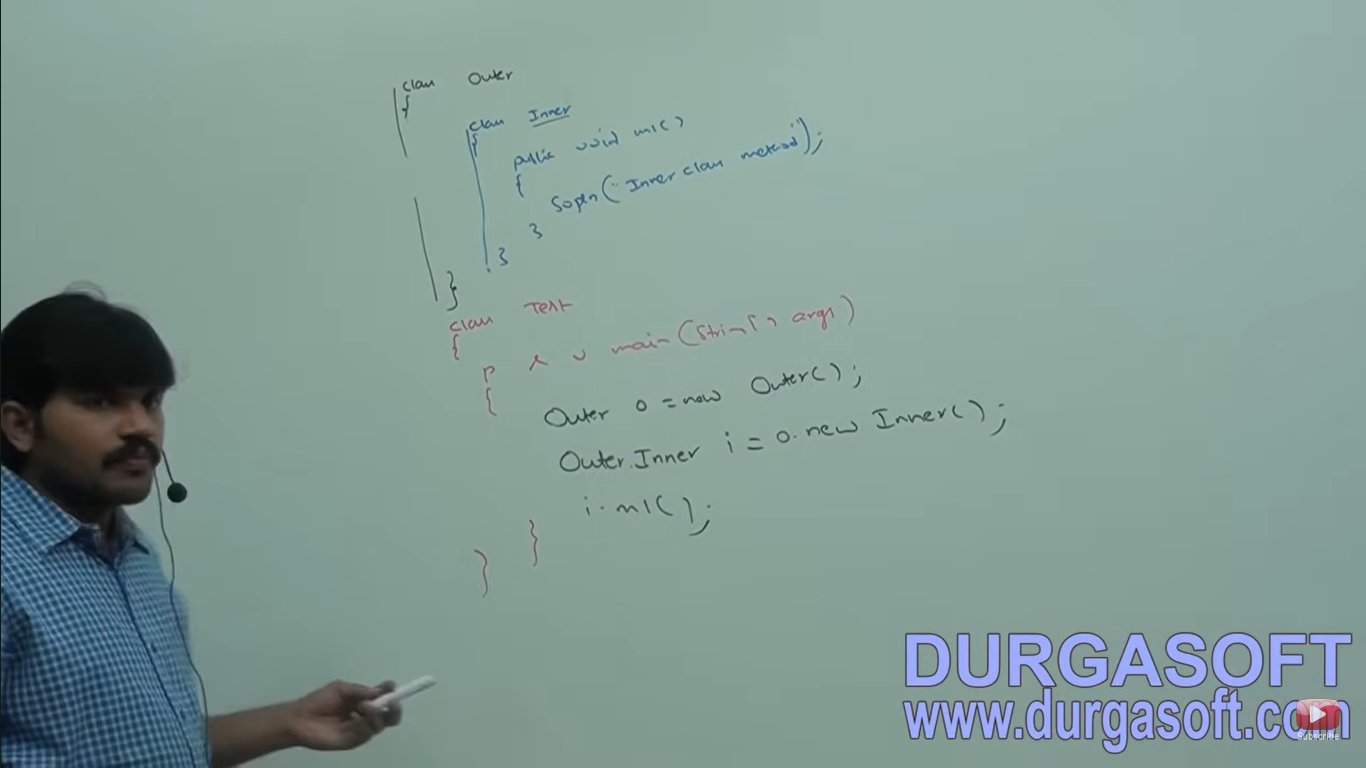 class Outer
{
class Inner
{
public void m1()
{
Sopln("Inner class method");
}
}
}
class Test
{
p s v main(String[] args)
{
Outer o = new Outer();
Outer.Inner i = o.new Inner();
i.m1();
}
}
DURGASOFT
www.durgasoft.com
Subscribe